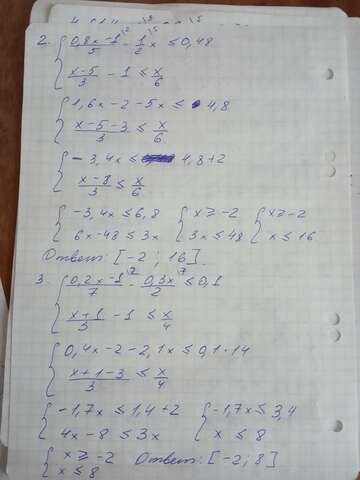 2. { (0,8x-1)/5 \2 - 1/2 x \5 ≤ 0,48
{ (x-5)/3 - 1 ≤ x/6
{ 1,6x-2-5x ≤ 4,8
{ (x-5-3)/3 ≤ x/6
{ -3,4x ≤ 4,8+2
{ (x-8)/3 ≤ x/6
{ -3,4x ≤ 6,8 { x ≥ -2 { x ≥ -2
{ 6x-48 ≤ 3x { 3x ≤ 48 { x ≤ 16
Ответ: [-2; 16].
3. { (0,2x-1)/7 \2 - 0,3x/2 \7 ≤ 0,1
{ (x+1)/3 - 1 ≤ x/4
{ 0,4x-2-2,1x ≤ 0,1·14
{ (x+1-3)/3 ≤ x/4
{ -1,7x ≤ 1,4+2 { -1,7x ≤ 3,4
{ 4x-8 ≤ 3x { x ≤ 8
{ x ≥ -2 Ответ: [-2; 8]
{ x ≤ 8